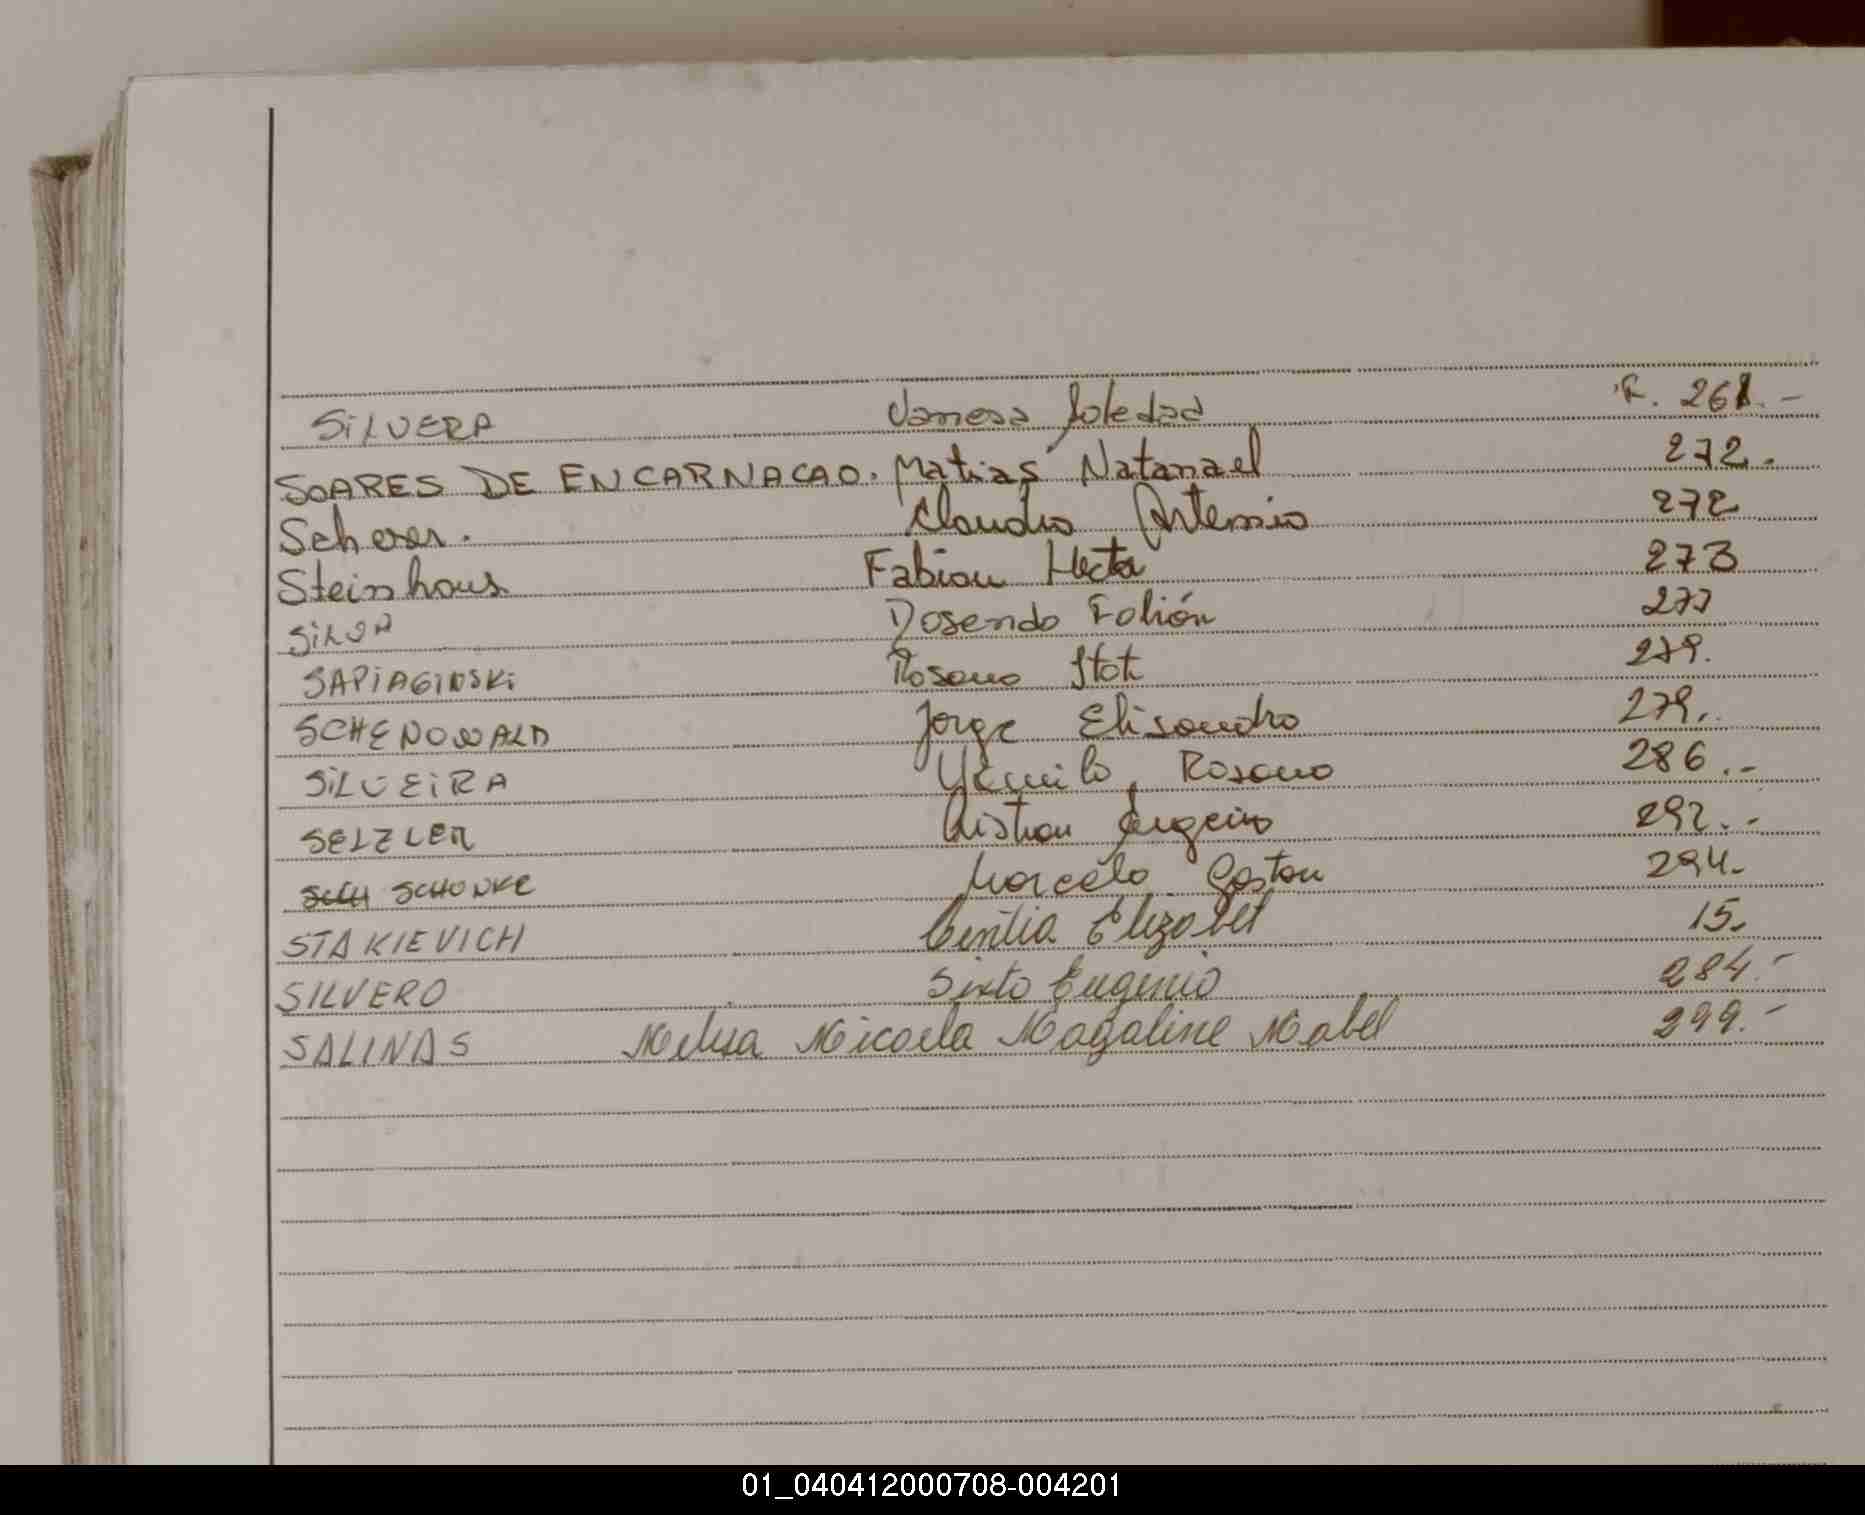 SILVERA Vanesa Soledad F. 261.-
SOARES DE ENCARNACAO. Matias Natanael 272.
Scherer. Claudio Artemio 272
Steinhaus Fabian Hector 273
SILVA Rosendo Fabián 277
SAPIAGINSKI Rosana Itatí 279.
SCHENOWALD Jorge Elisandro 279..
SILVEIRA Yamila Rosana 286.-
SELZLER Cristian Eugenio 292.-
SCHONKE Marcelo Gaston 294.
STAKIEVICH Cintia Elizabet 15.
SILVERO Sixto Eugenio 284.-
SALINAS Melisa Micaela Magaline Mabel 299.-
01_040412000708-004201